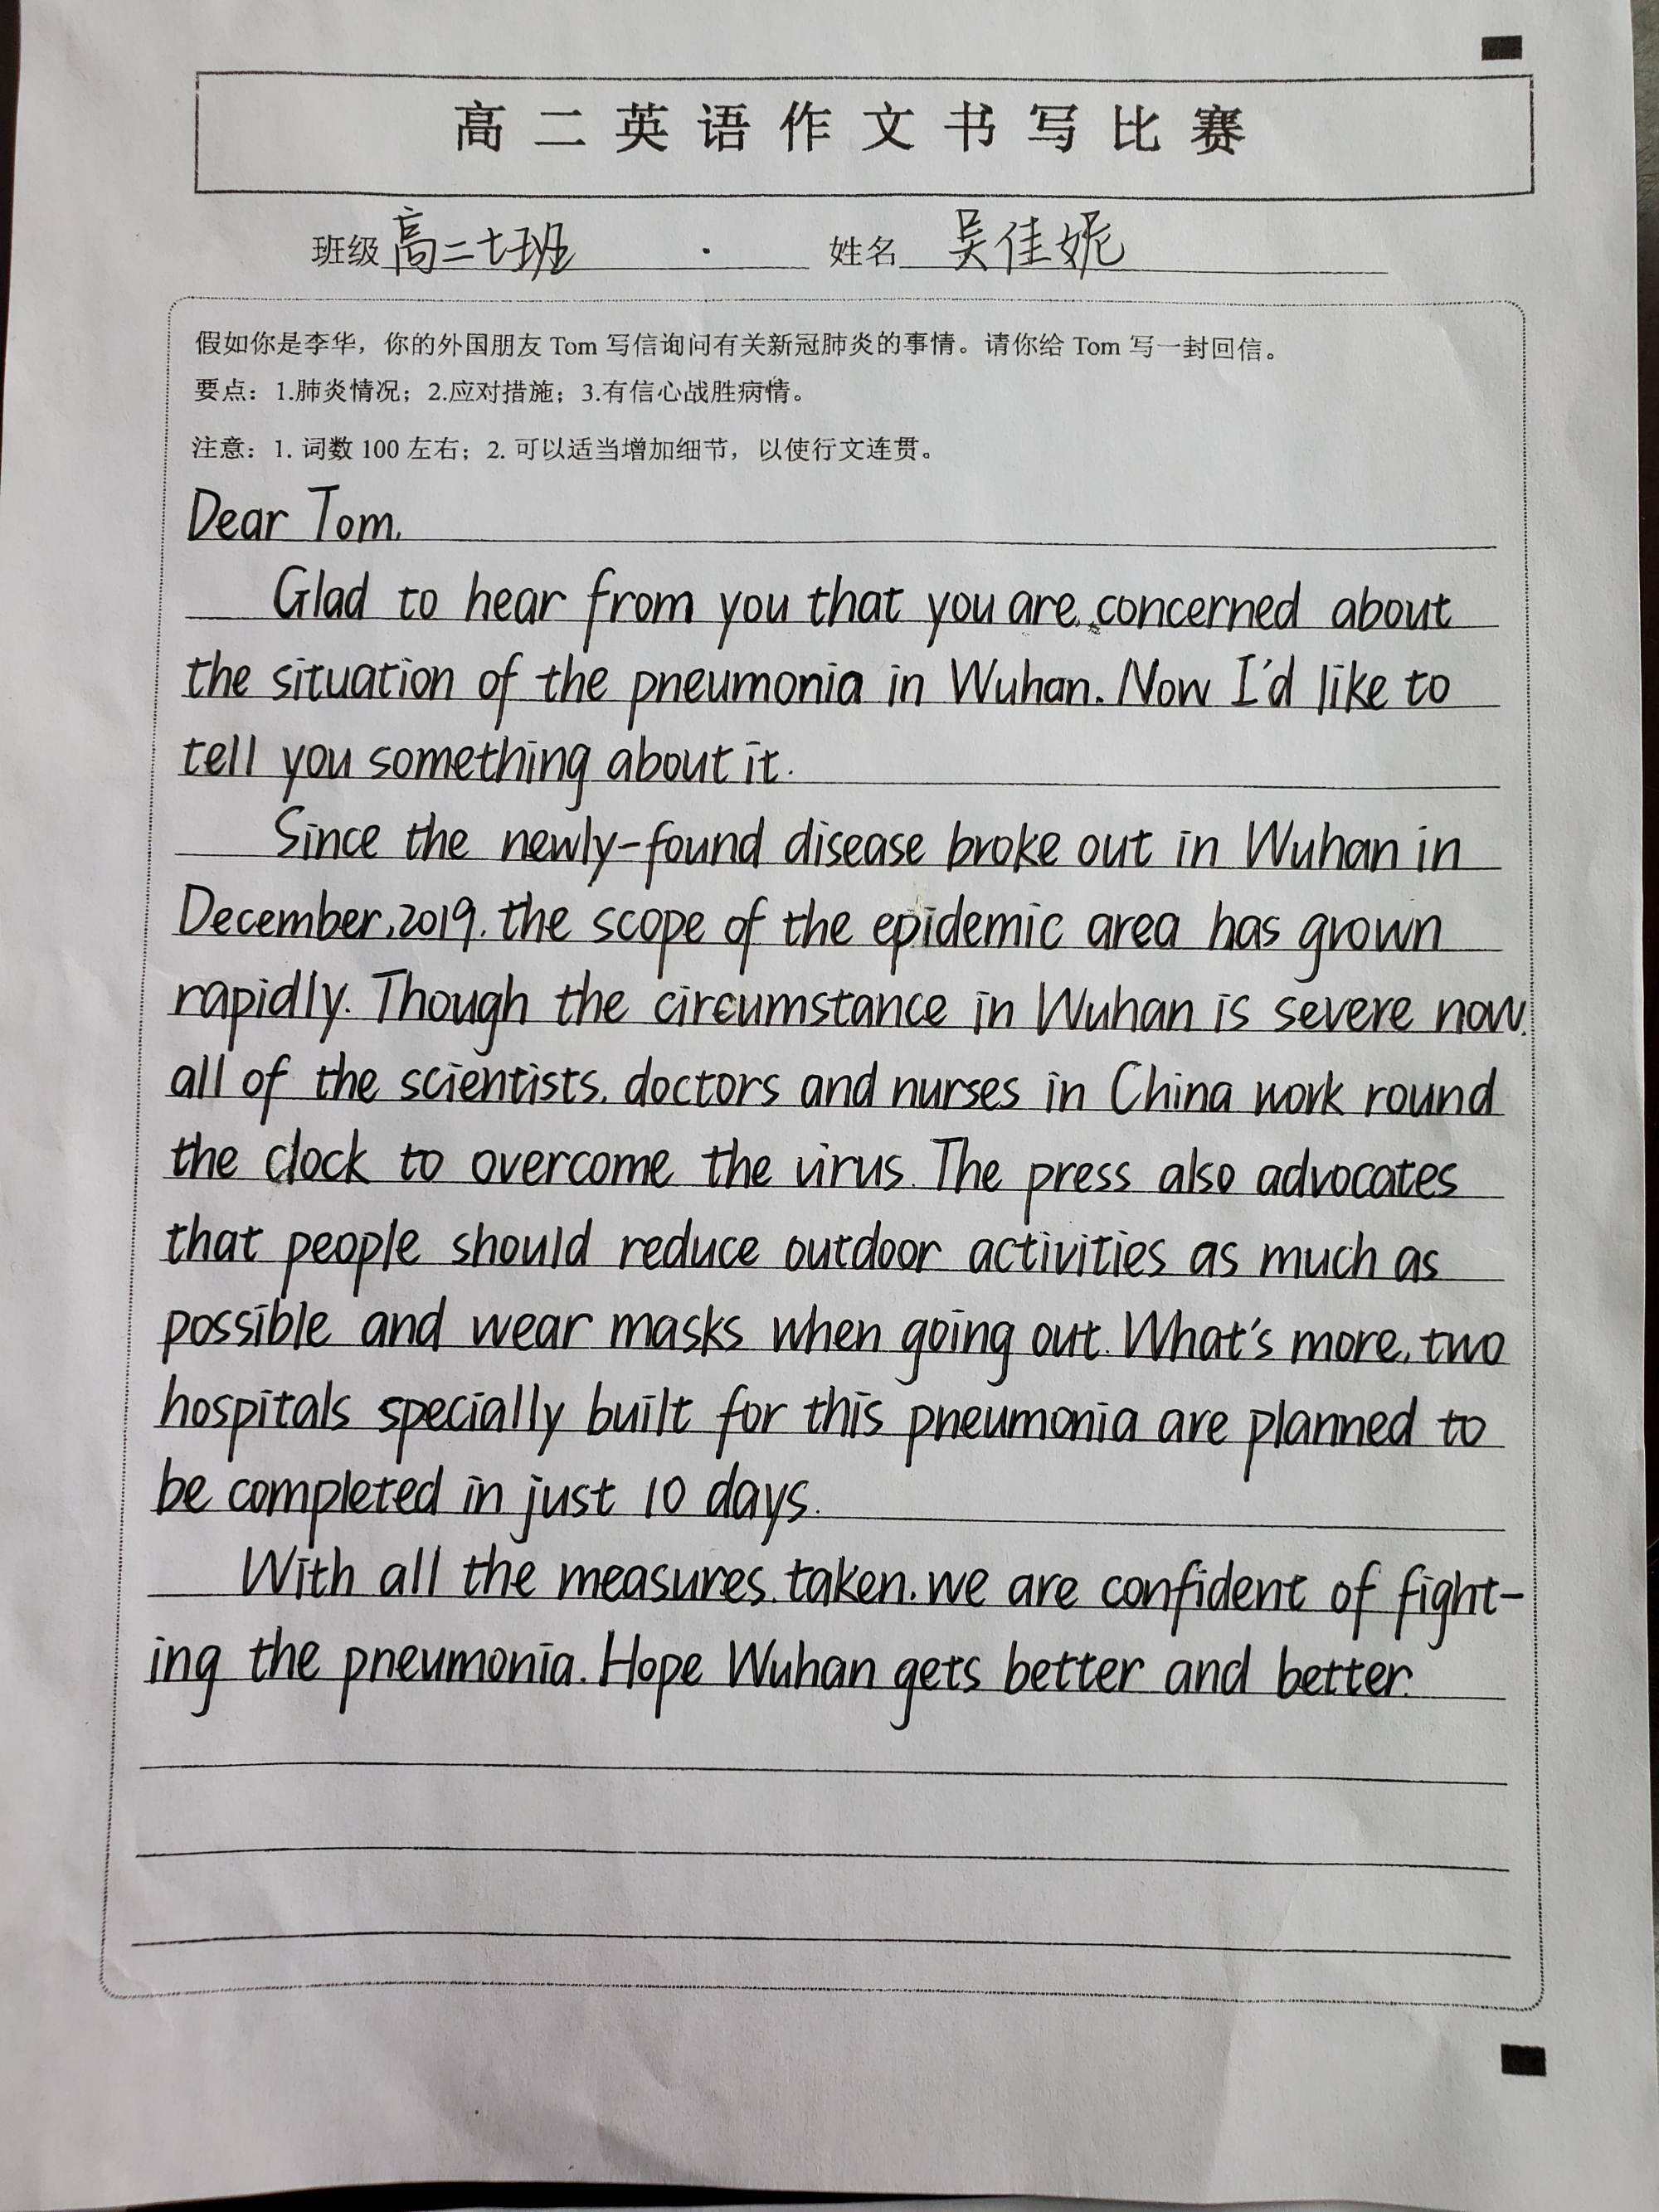 高二英语作文书写比赛
班级 高二七班 姓名 吴佳妮
假如你是李华，你的外国朋友 Tom 写信询问有关新冠肺炎的事情。请你给 Tom 写一封回信。
要点：1.肺炎情况；2.应对措施；3.有信心战胜病情。
注意：1. 词数 100 左右；2. 可以适当增加细节，以使行文连贯。
Dear Tom,
Glad to hear from you that you are concerned about
the situation of the pneumonia in Wuhan. Now I'd like to
tell you something about it.
Since the newly-found disease broke out in Wuhan in
December, 2019, the scope of the epidemic area has grown
rapidly. Though the circumstance in Wuhan is severe now,
all of the scientists, doctors and nurses in China work round
the clock to overcome the virus. The press also advocates
that people should reduce outdoor activities as much as
possible and wear masks when going out. What's more, two
hospitals specially built for this pneumonia are planned to
be completed in just 10 days.
With all the measures taken, we are confident of fight-
ing the pneumonia. Hope Wuhan gets better and better.